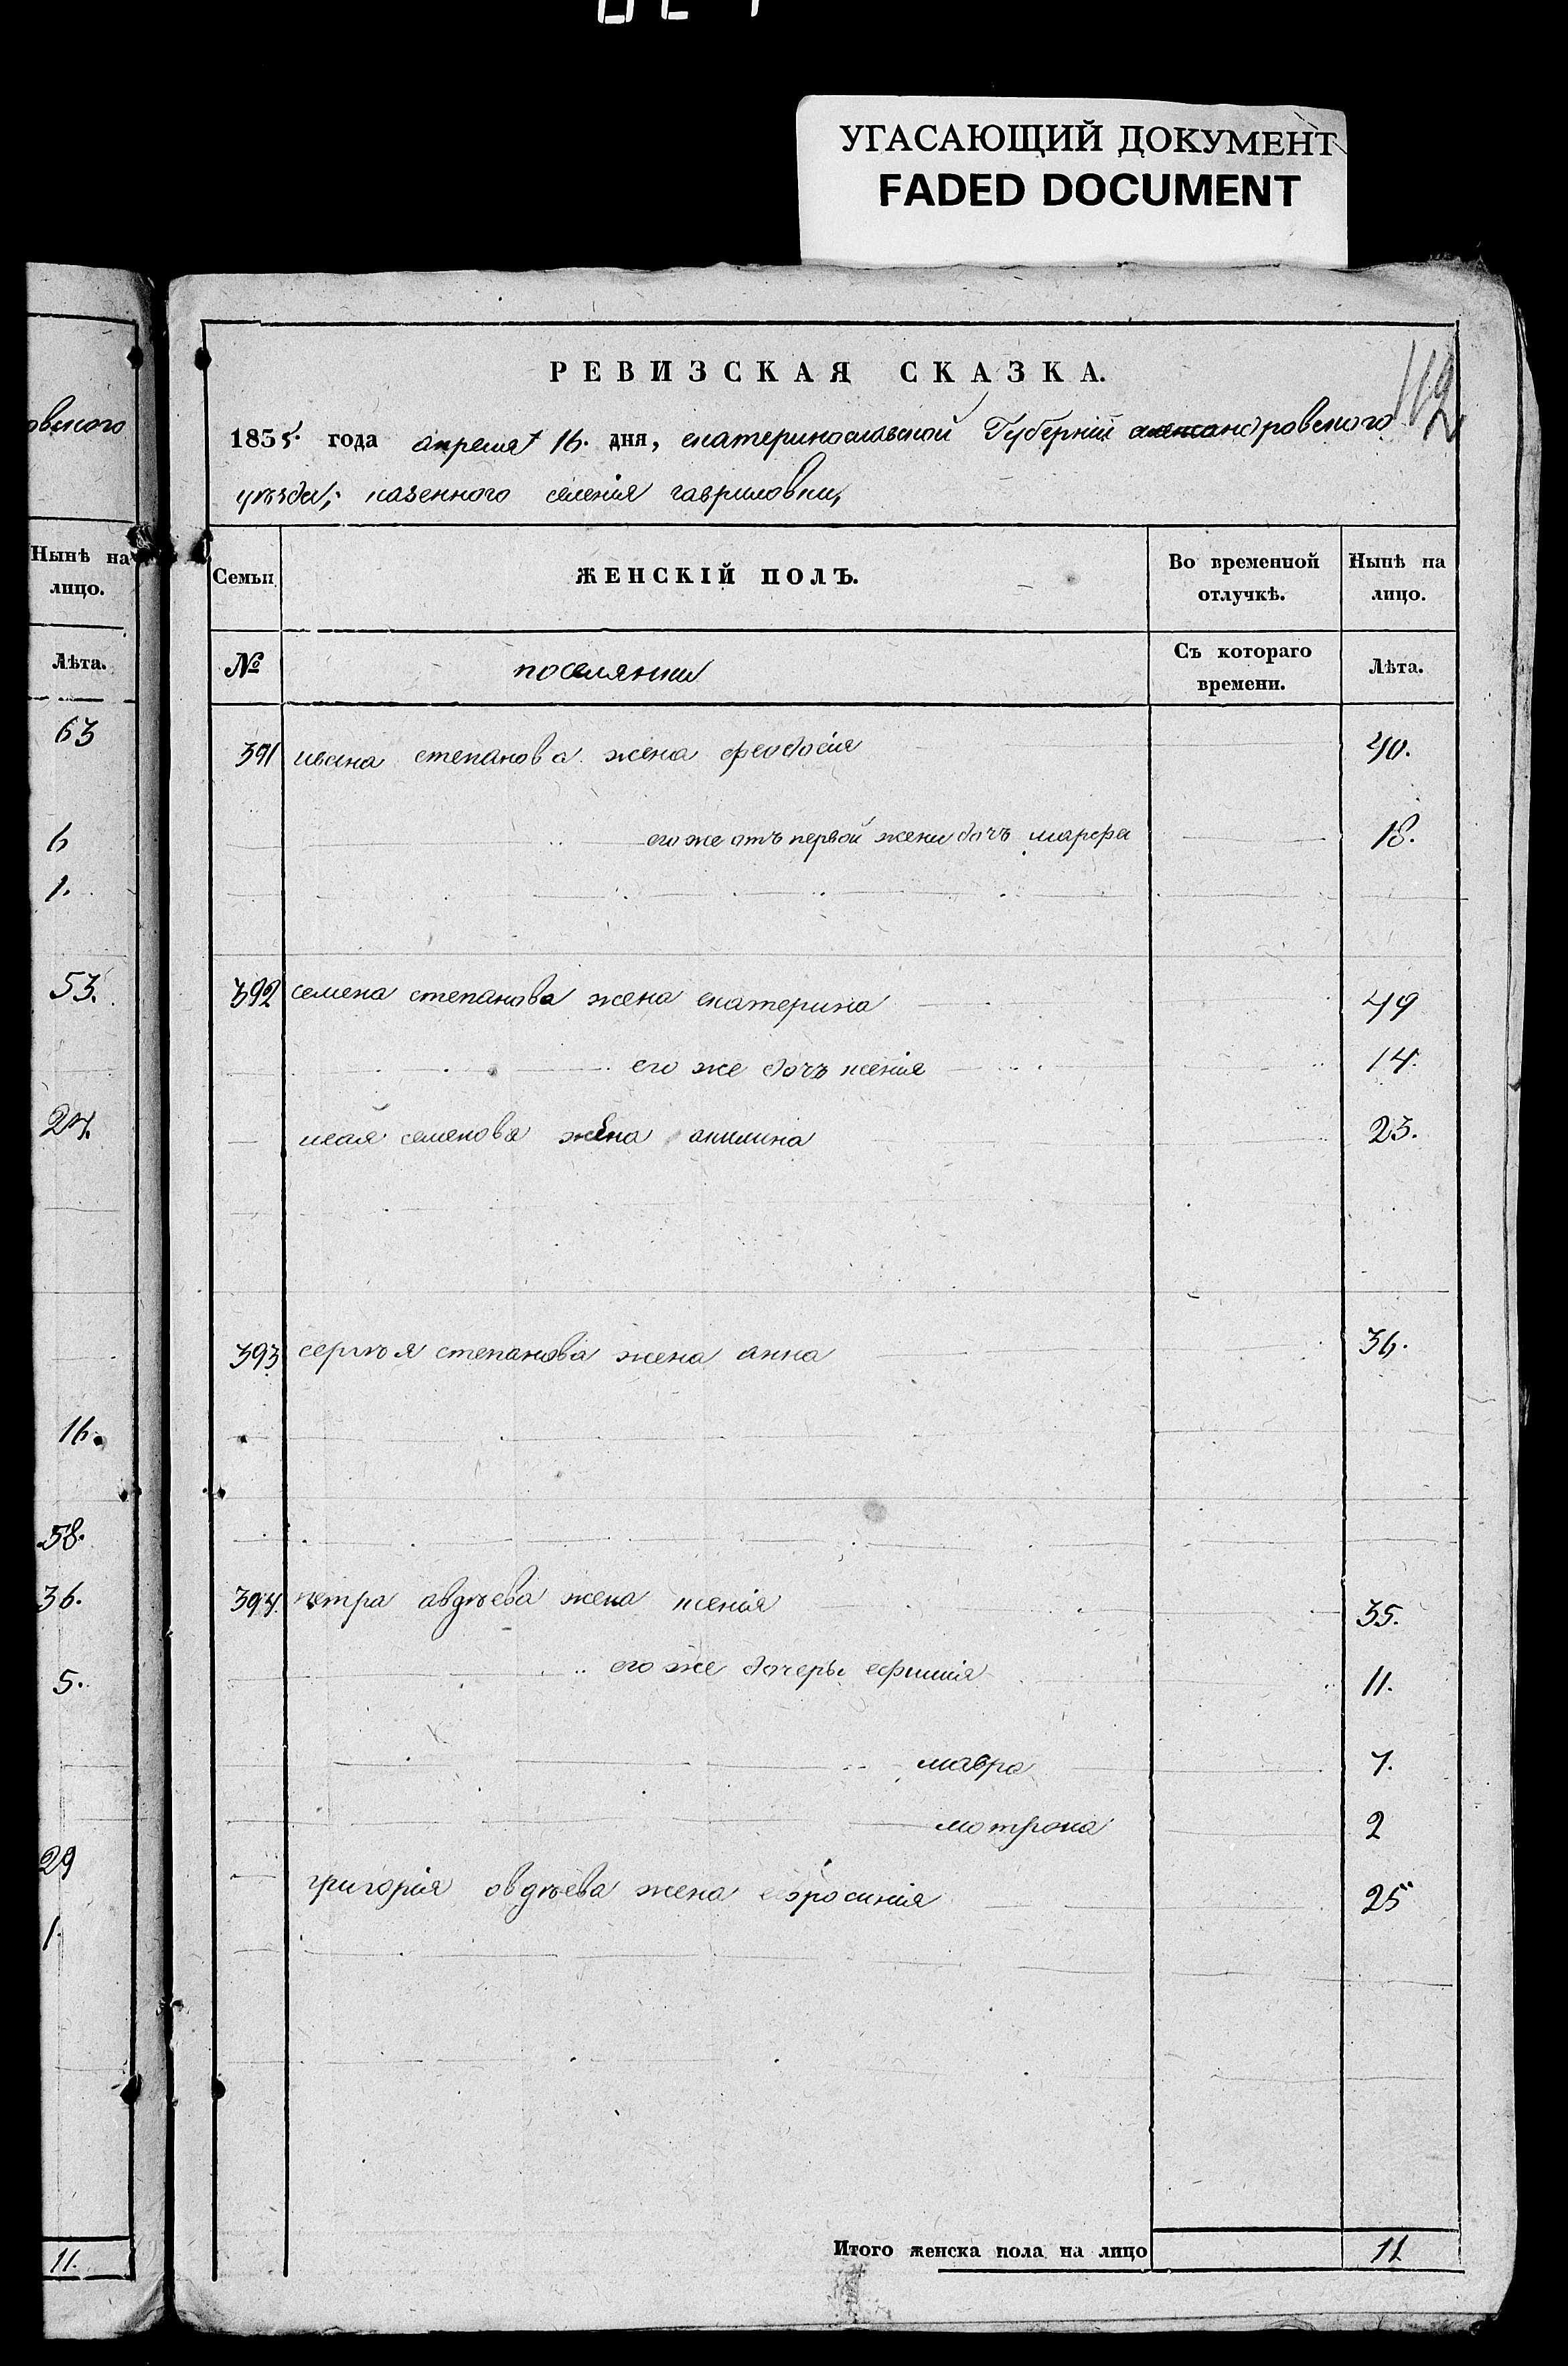 УГАСАЮЩИЙ ДОКУМЕНТ
FADED DOCUMENT
овского
Нынѣ на
лицо.
Лѣта.
63
6
1.
53.
27.
16.
58.
36.
5.
29
1.
11.
112
РЕВИЗСКАЯ СКАЗКА.
1855. года апреля 16. дня, екатеринославской Губерніи александровского
уѣзда, казенного селенія гавриловки,
Семьи ЖЕНСКІЙ ПОЛЪ. Во временной отлучкѣ. Нынѣ на лицо.
№ поселянки Съ котораго времени. Лѣта.
391 ивана степанова жена феодосія 40.
его же отъ первой жени дочъ марфа 18.
392 семена степанова жена екатерина 49
его же дочъ ксенія 14.
исая семенова жена акилина 23.
393 сергѣя степанова жена анна 36.
394. петра авдѣева жена ксенія 35.
его же дочеръи ефимія 11.
мавра 7.
мотрона 2
григорія овдѣева жена ефросинія 25
Итого женска пола на лицо 11